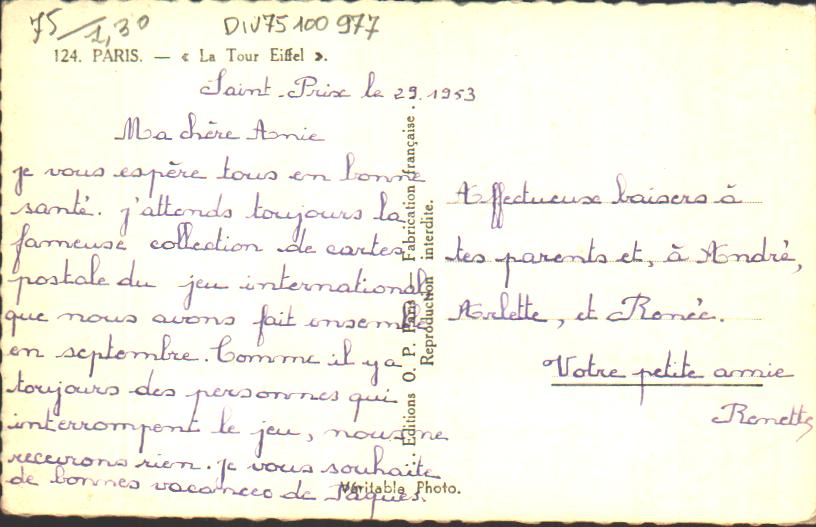 75/1,30 DIV75 100 977
124. PARIS. — « La Tour Eiffel ».
Saint-Prix le 29.1953
Ma chère Amie
je vous espère tous en bonne
santé. j'attends toujours la
fameuse collection de cartes
postale du jeu international
que nous avons fait ensemble
en septembre. Comme il y a
toujours des personnes qui
interrompent le jeu, nous ne
recevrons rien. je vous souhaite
de bonnes vacances de Pâques.
Editions O. P. Paris — Fabrication française.
Reproduction interdite.
Véritable Photo.
Affectueuse baisers à
tes parents et, à André,
Arlette, et Renée.
Votre petite amie
Renette